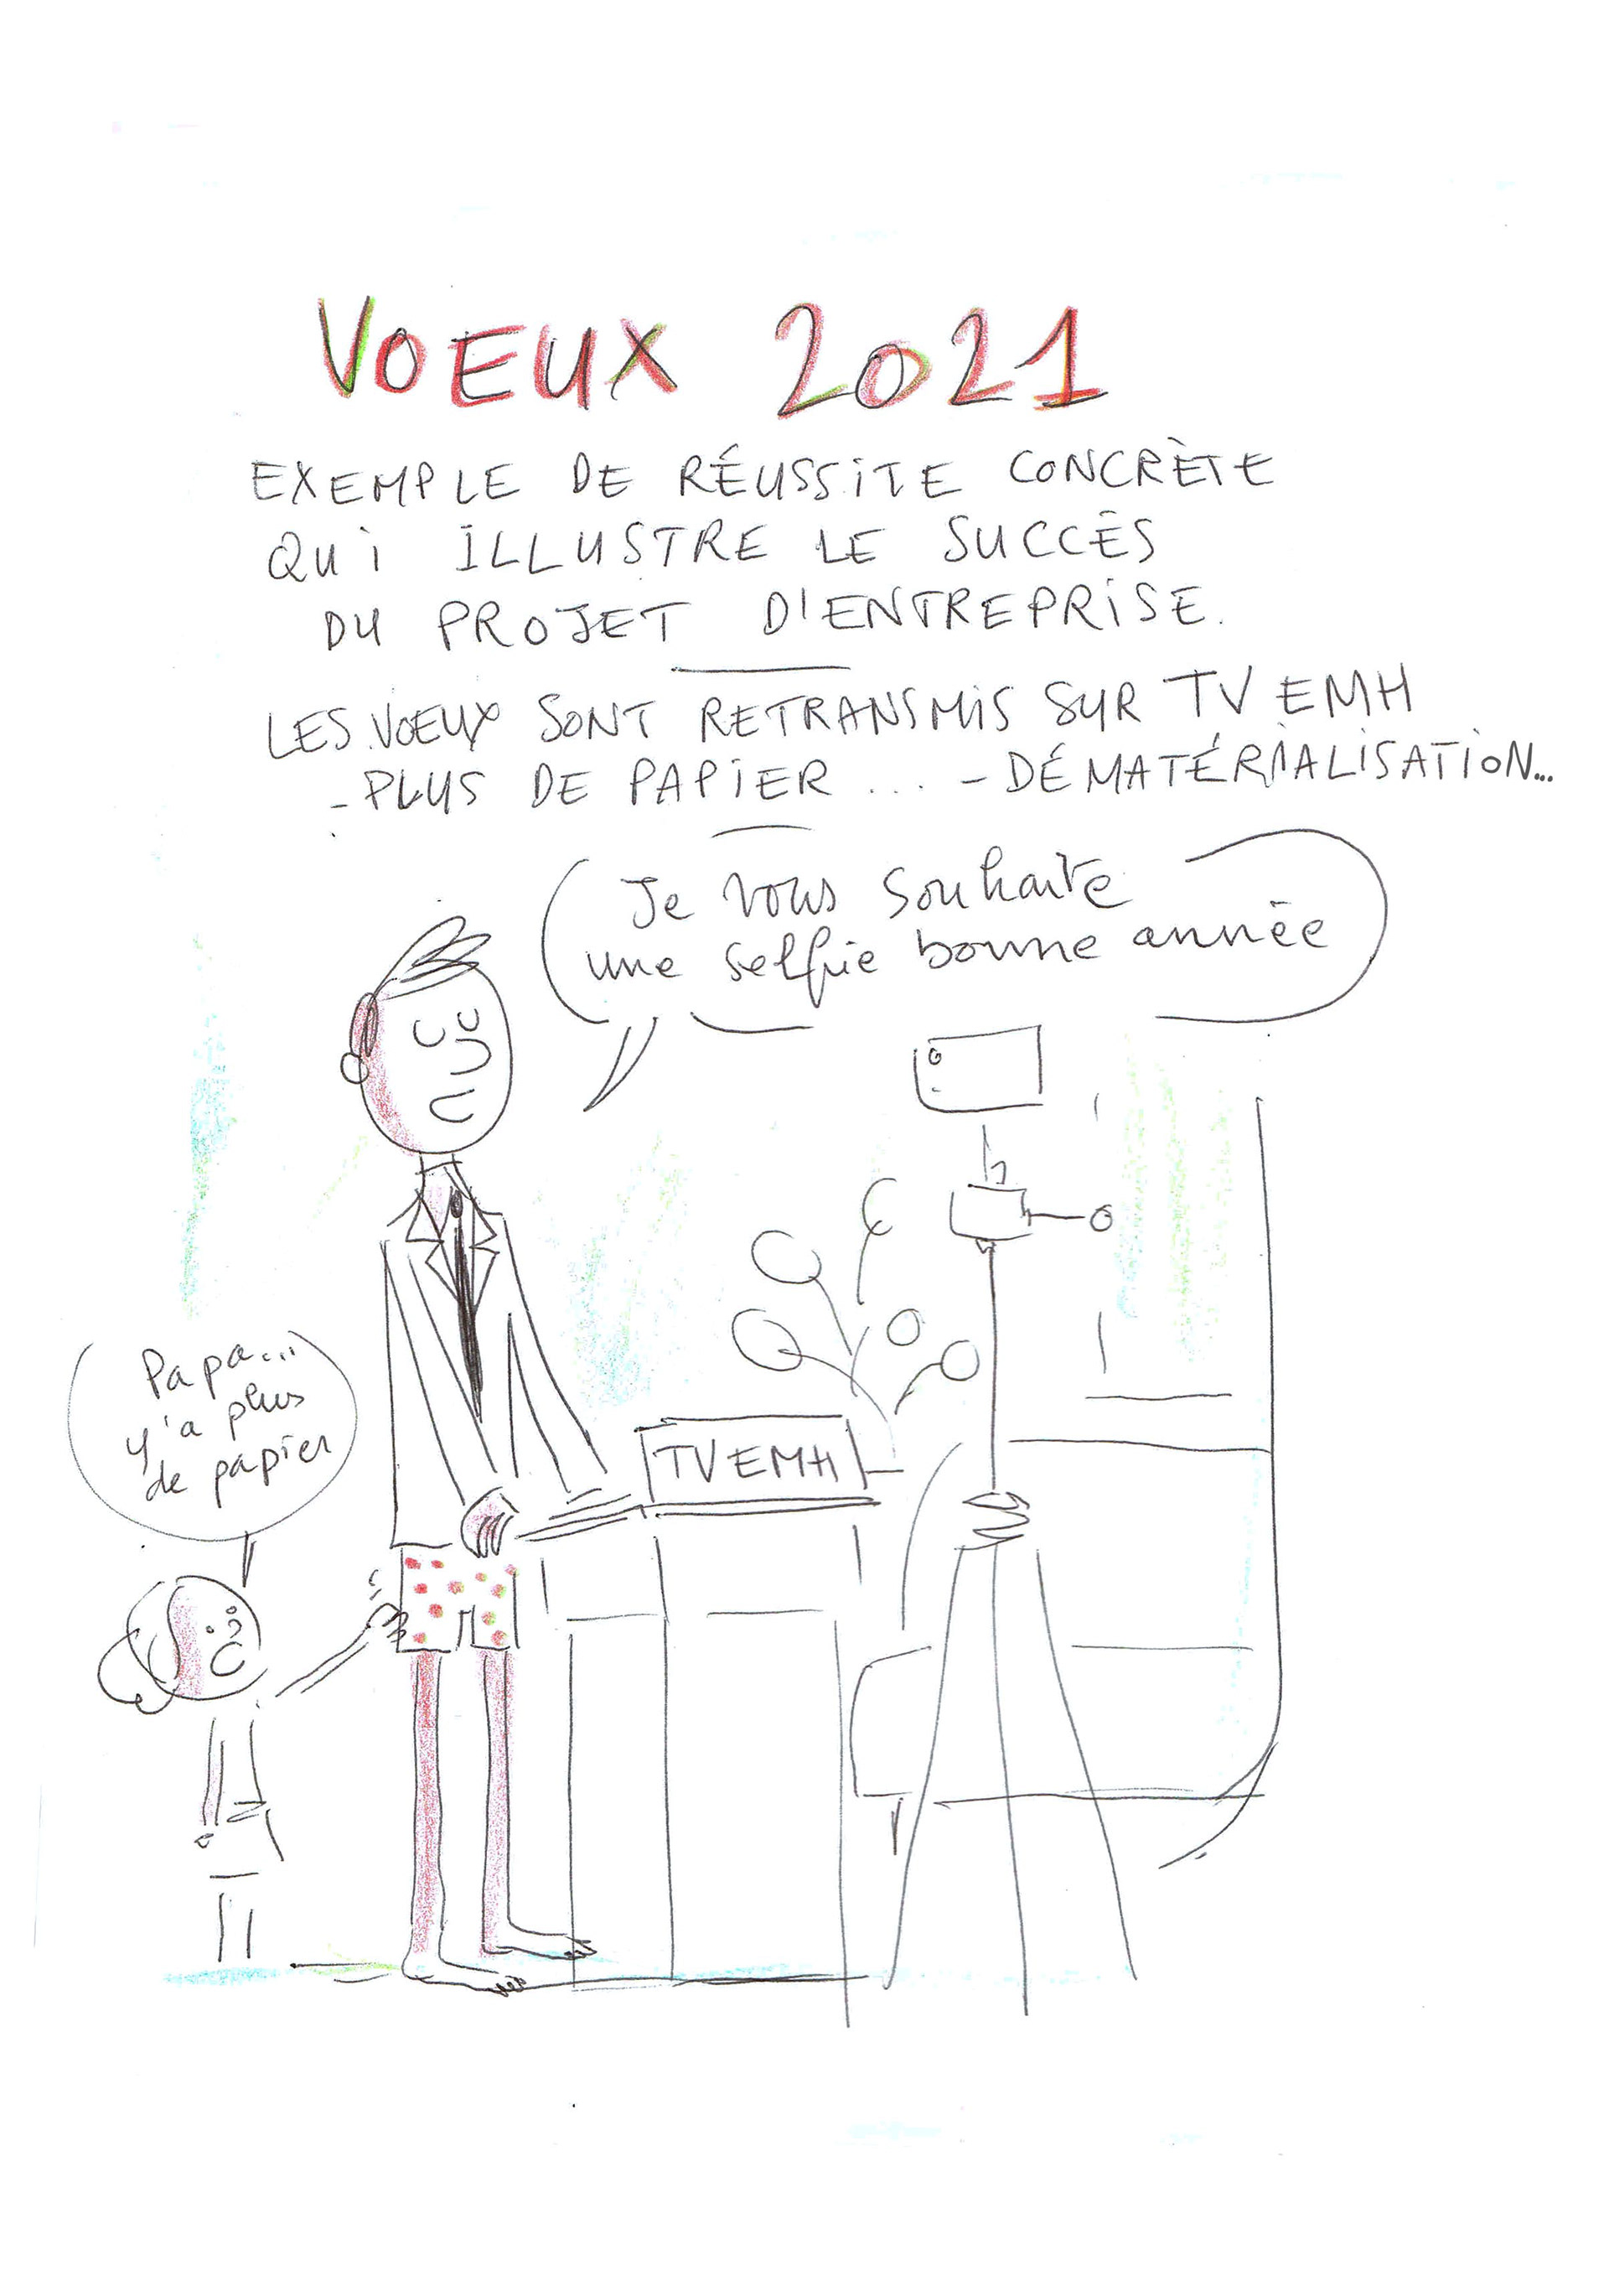 VOEUX 2021
EXEMPLE DE RÉUSSITE CONCRÈTE
QUI ILLUSTRE LE SUCCÈS
DU PROJET D'ENTREPRISE.
LES VOEUX SONT RETRANSMIS SUR TV EMH
- PLUS DE PAPIER ... - DÉMATÉRIALISATION...
Je vous souhaite
une selfie bonne année
Papa...
y'a plus
de papier
TV EMH